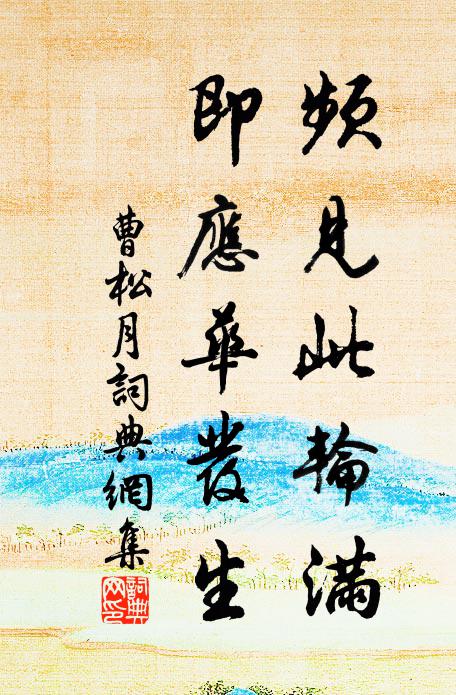 頻見此輪滿
即應華發生
曹松月詞典網集
詞典
网印